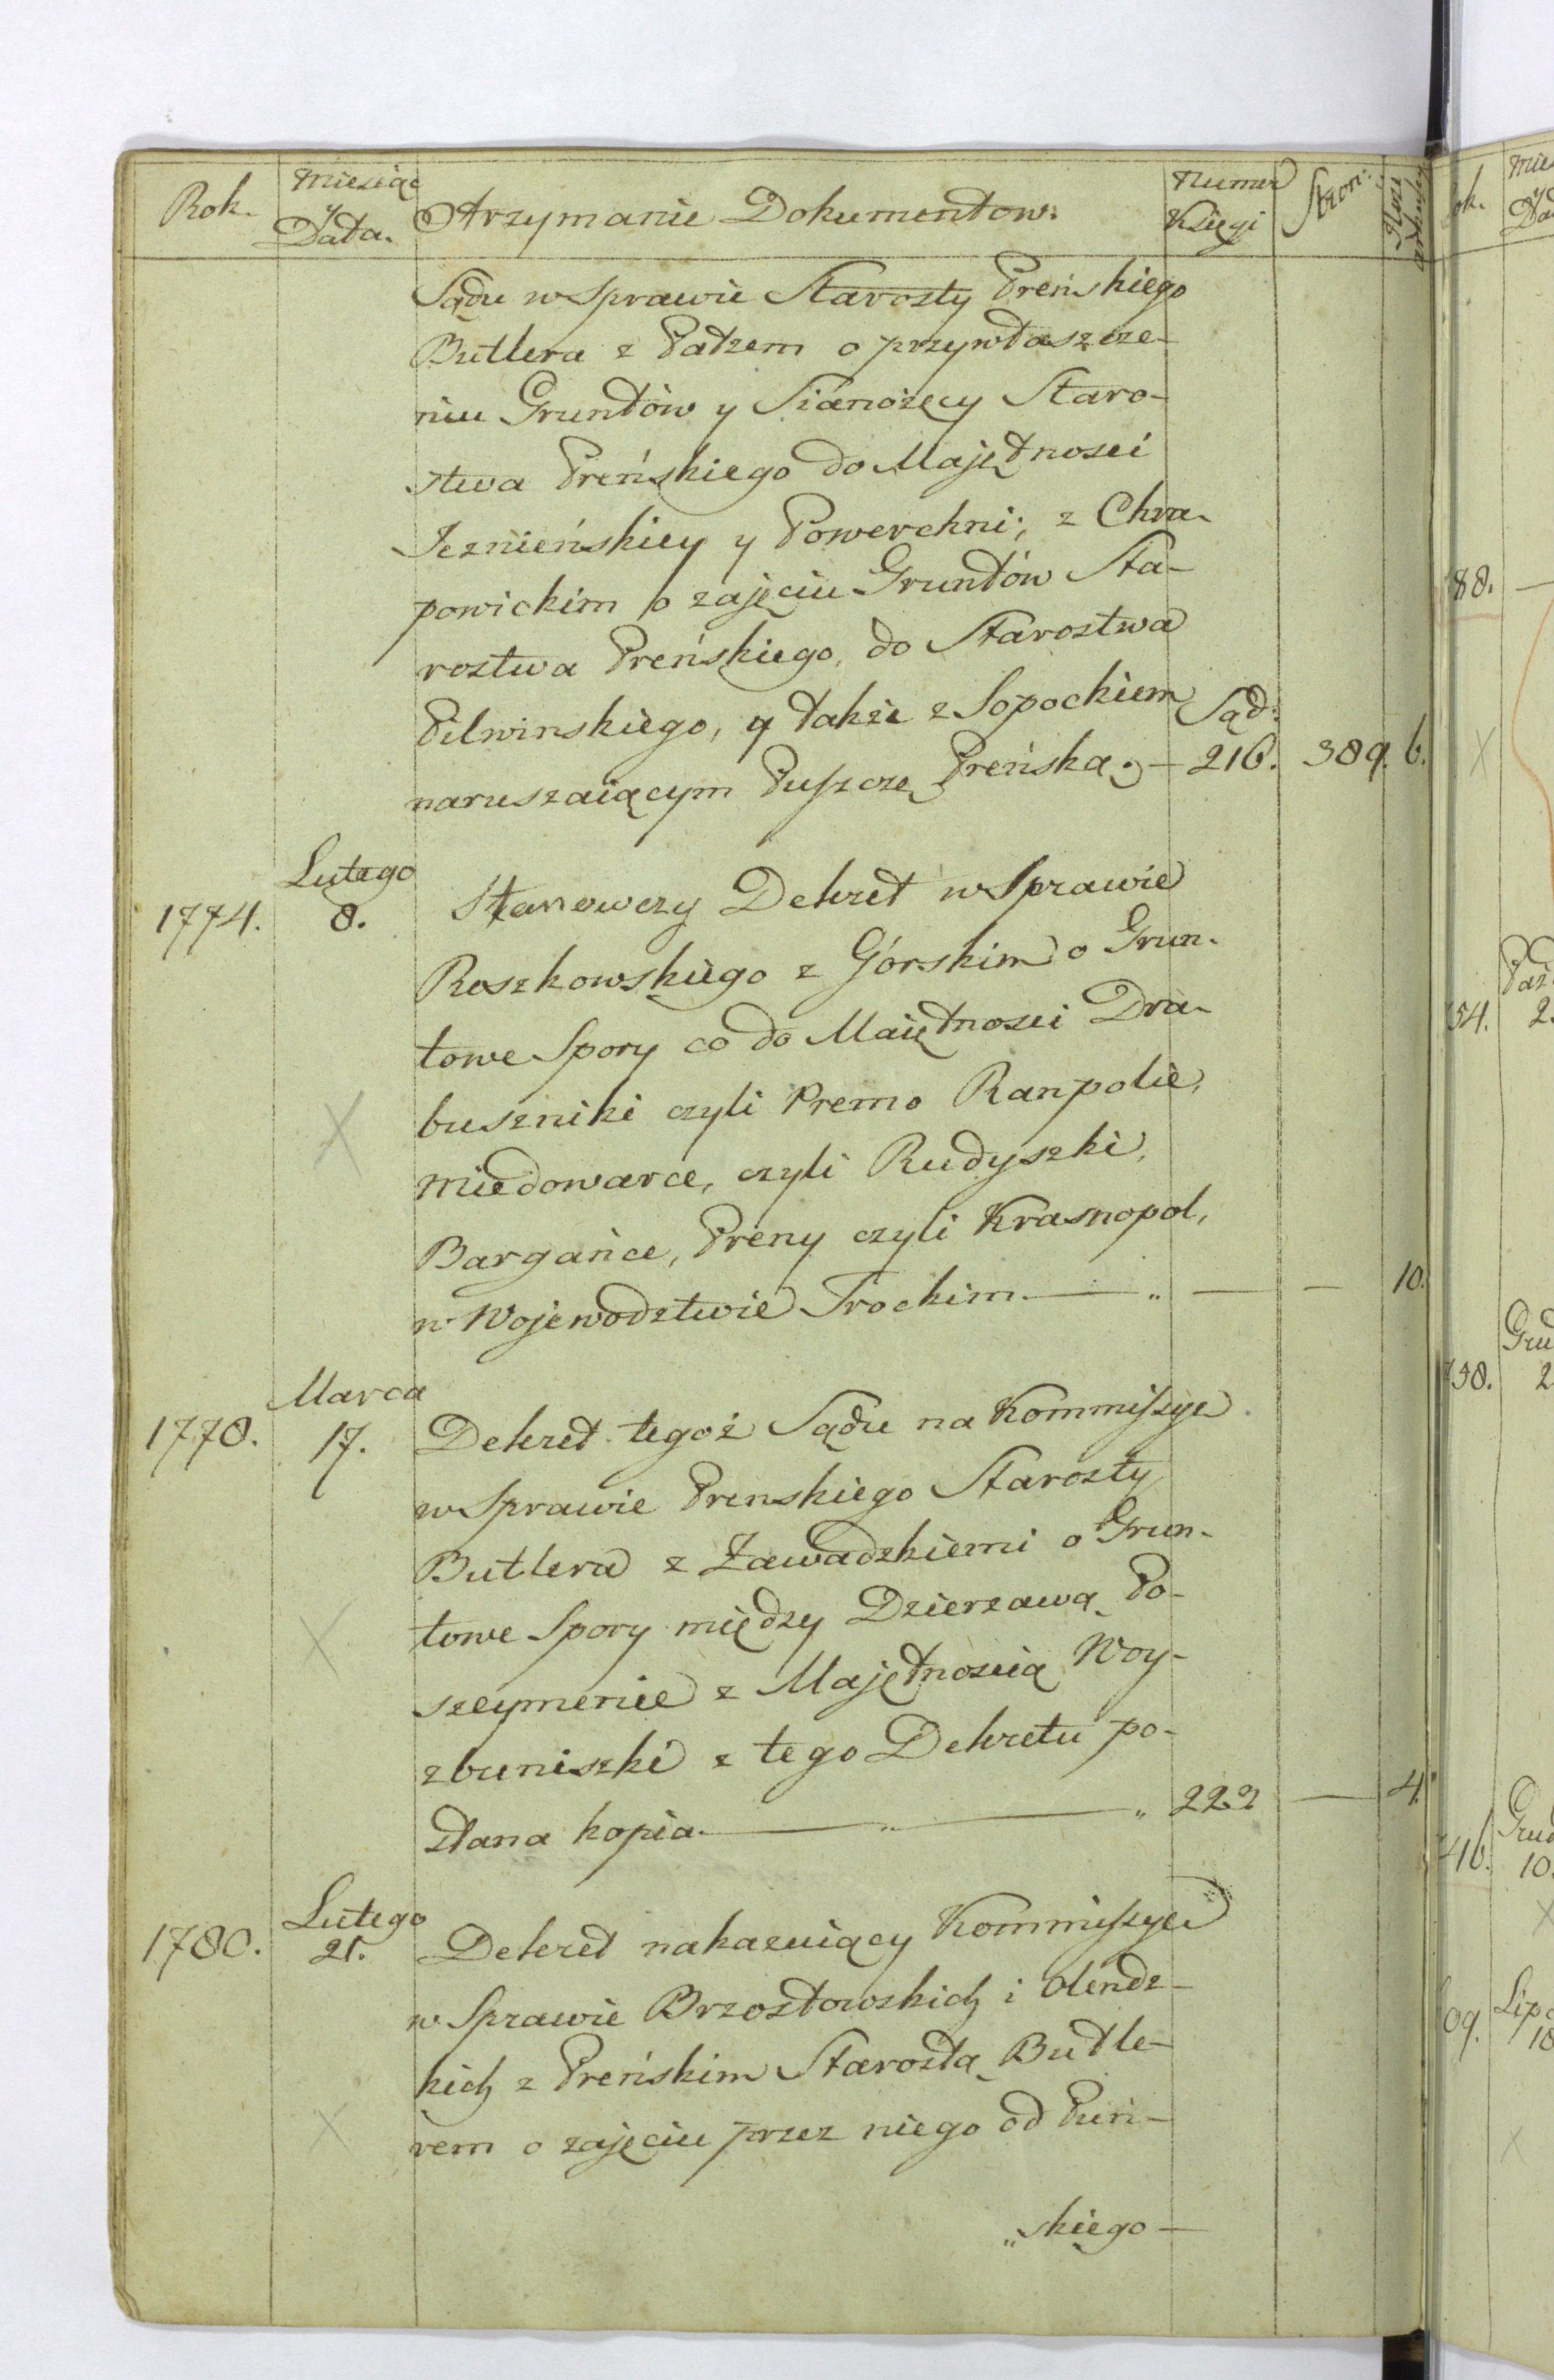 Rok. Miesiąc y Data. Otrzymanie Dokumentow. Numer Księgi Stron: Ilość arkuszy
Sądu w Sprawie Starosty Preńskiego
Butlera z Patzem o przywłaszcze-
niu Gruntów y Sianożęcy Staro-
stwa Preńskiego do Majętnosci
Jeznieńskiey y Powerchni; z Chra-
powickim o zajęciu Gruntów Sta-
rostwa Preńskiego, do Starostwa
Pilwinskiego, y także z Sopockiem Sąd:
naruszaiącym Puszczę Preńską. — 216. 389. 6.
Lutego
1774. 8. Stanowczy Dekret w Sprawie
Roszkowskiego z Górskim o Grun-
towe Spory co do Maiętnosci Dra-
buszniki czyli Premo Ranpolie,
Miedowarce, czyli Rudyszki,
Bargańce, Preny czyli Krasnopol,
w Wojewodztwie Trockim. — „ — — 10.
Marca
1778. 17. Dekret tegoż Sądu na Kommiszye
w Sprawie Prenskiego Starosty
Butlera z Zawadzkiemi o Grun-
towe Spory między Dzierzawą Po-
szeymenie z Majętnoscią Woy-
zbuniszki z tego Dekretu po-
słana kopia. — „ — „ 222 — 4.
Lutego
1780. 21. Dekret nakazuiący Kommiszye
w Sprawie Brzostowskich i Olendz-
kich z Preńskim Starostą Butle-
rem o zajęciu przez niego od Puń-
„skiego —